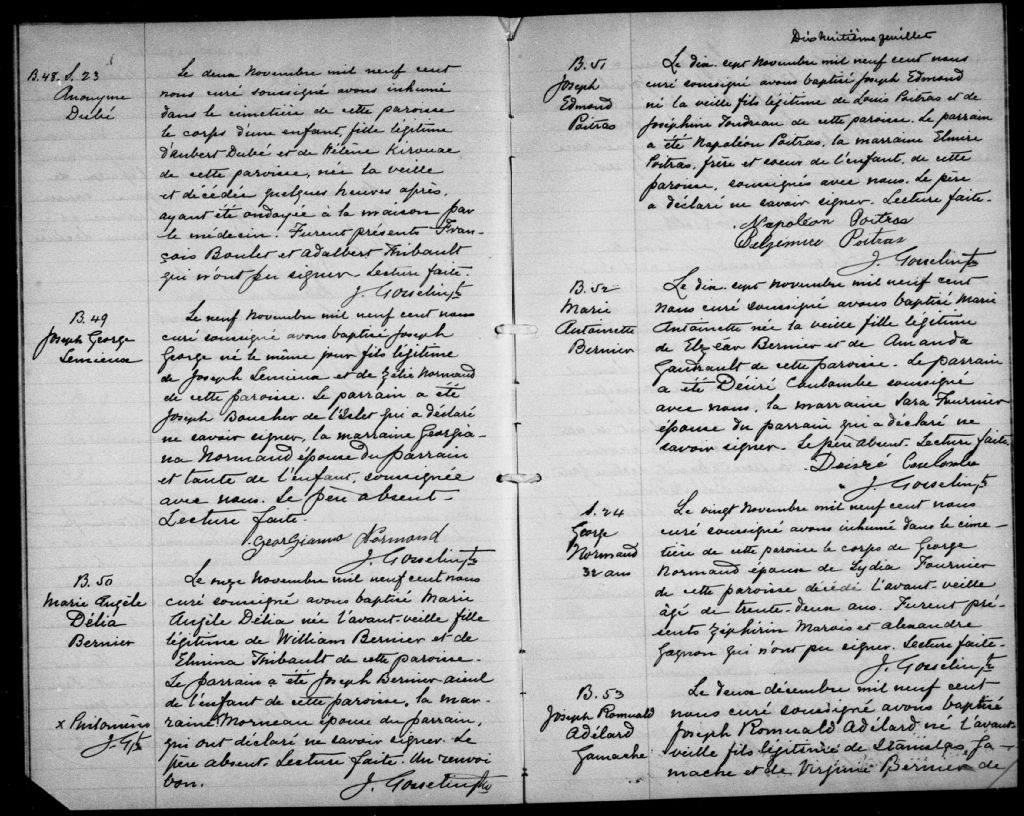 B.48. S. 23
Anonyme
Dubé
Le deux Novembre mil neuf cent
nous curé soussigné avons inhumé
dans le cimetière de cette paroisse
le corps d'une enfant, fille légitime
d'Aubert Dubé et de Hélène Kirouac
de cette paroisse, née la veille
et décédée quelques heures après,
ayant été ondoyée à la maison par
le médecin. Furent présents Fran-
çois Boulet et Adalbert Thibault
qui n'ont pu signer. Lecture faite.
J. Gosselin Ptr
B.49
Joseph George
Lemieux
Le neuf Novembre mil neuf cent nous
curé soussigné avons baptisé Joseph
George né le même jour fils légitime
de Joseph Lemieux et de Zélie Normand
de cette paroisse. Le parrain a été
Joseph Boucher de l'Islet qui a déclaré
ne savoir signer, la marraine Georgia-
na Normand épouse du parrain
et tante de l'enfant, soussignée
avec nous. Le père absent.
Lecture faite.
Georgianna Normand
J. Gosselin Ptr
B.50
Marie Angèle
Délia
Bernier
Le onze Novembre mil neuf cent nous
curé soussigné avons baptisé Marie
Angèle Délia née l'avant-veille fille
légitime de William Bernier et de
Elmina Thibault de cette paroisse.
Le parrain a été Joseph Bernier aieul
de l'enfant de cette paroisse, la mar-
x Philomène
J. G. Ptr
raine x Morneau épouse du parrain,
qui ont déclaré ne savoir signer. Le
père absent. Lecture faite. Un renvoi
bon.
J. Gosselin Ptr
Dix huitième feuillet
B.51
Joseph
Edmond
Poitras
Le dix sept Novembre mil neuf cent nous
curé soussigné avons baptisé Joseph Edmond
né la veille, fils légitime de Louis Poitras et de
Joséphine Jondreau de cette paroisse. Le parrain
a été Napoléon Poitras, la marraine Elmire
Poitras, frère et soeur de l'enfant, de cette
paroisse, soussignés avec nous. Le père
a déclaré ne savoir signer. Lecture faite.
Napoléon Poitras
Poitras
J. Gosselin Ptr
B.52
Marie
Antoinette
Bernier
Le dix sept Novembre mil neuf cent
nous curé soussigné avons baptisé Marie
Antoinette née la veille fille légitime
de Elzéar Bernier et de Amanda
Gaudrault de cette paroisse. Le parrain
a été Désiré Coulombe soussigné
avec nous, la marraine Sara Fournier
épouse du parrain qui a déclaré ne
savoir signer. Le père absent. Lecture faite
Desiré Coulombe
J. Gosselin Ptr
S. 24
George
Normand
32 ans
Le vingt Novembre mil neuf cent nous
curé soussigné avons inhumé dans le cime-
tière de cette paroisse le corps de George
Normand époux de Lydia Fournier
de cette paroisse décédé l'avant-veille
âgé de trente-deux ans. Furent pré-
sents Zéphirin Marois et Alexandre
Gagnon qui n'ont pu signer. Lecture faite.
J. Gosselin Ptr
B.53
Joseph Romuald
Adélard
Gamache
Le deux décembre mil neuf cent
nous curé soussigné avons baptisé
Joseph Romuald Adélard né l'avant
veille fils légitime de Stanislas Ga-
mache et de Virginie Bernier de